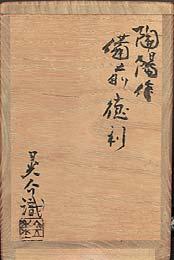 陶陽作
備前徳利
美今識